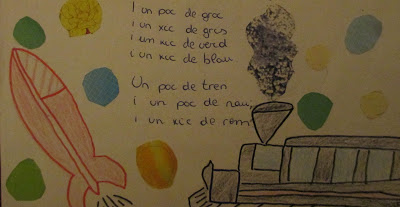 I un poc de groc
i un xic de gris
i un xic de verd
i un xic de blau
Un poc de tren
i un poc de nau
i un xic de rem